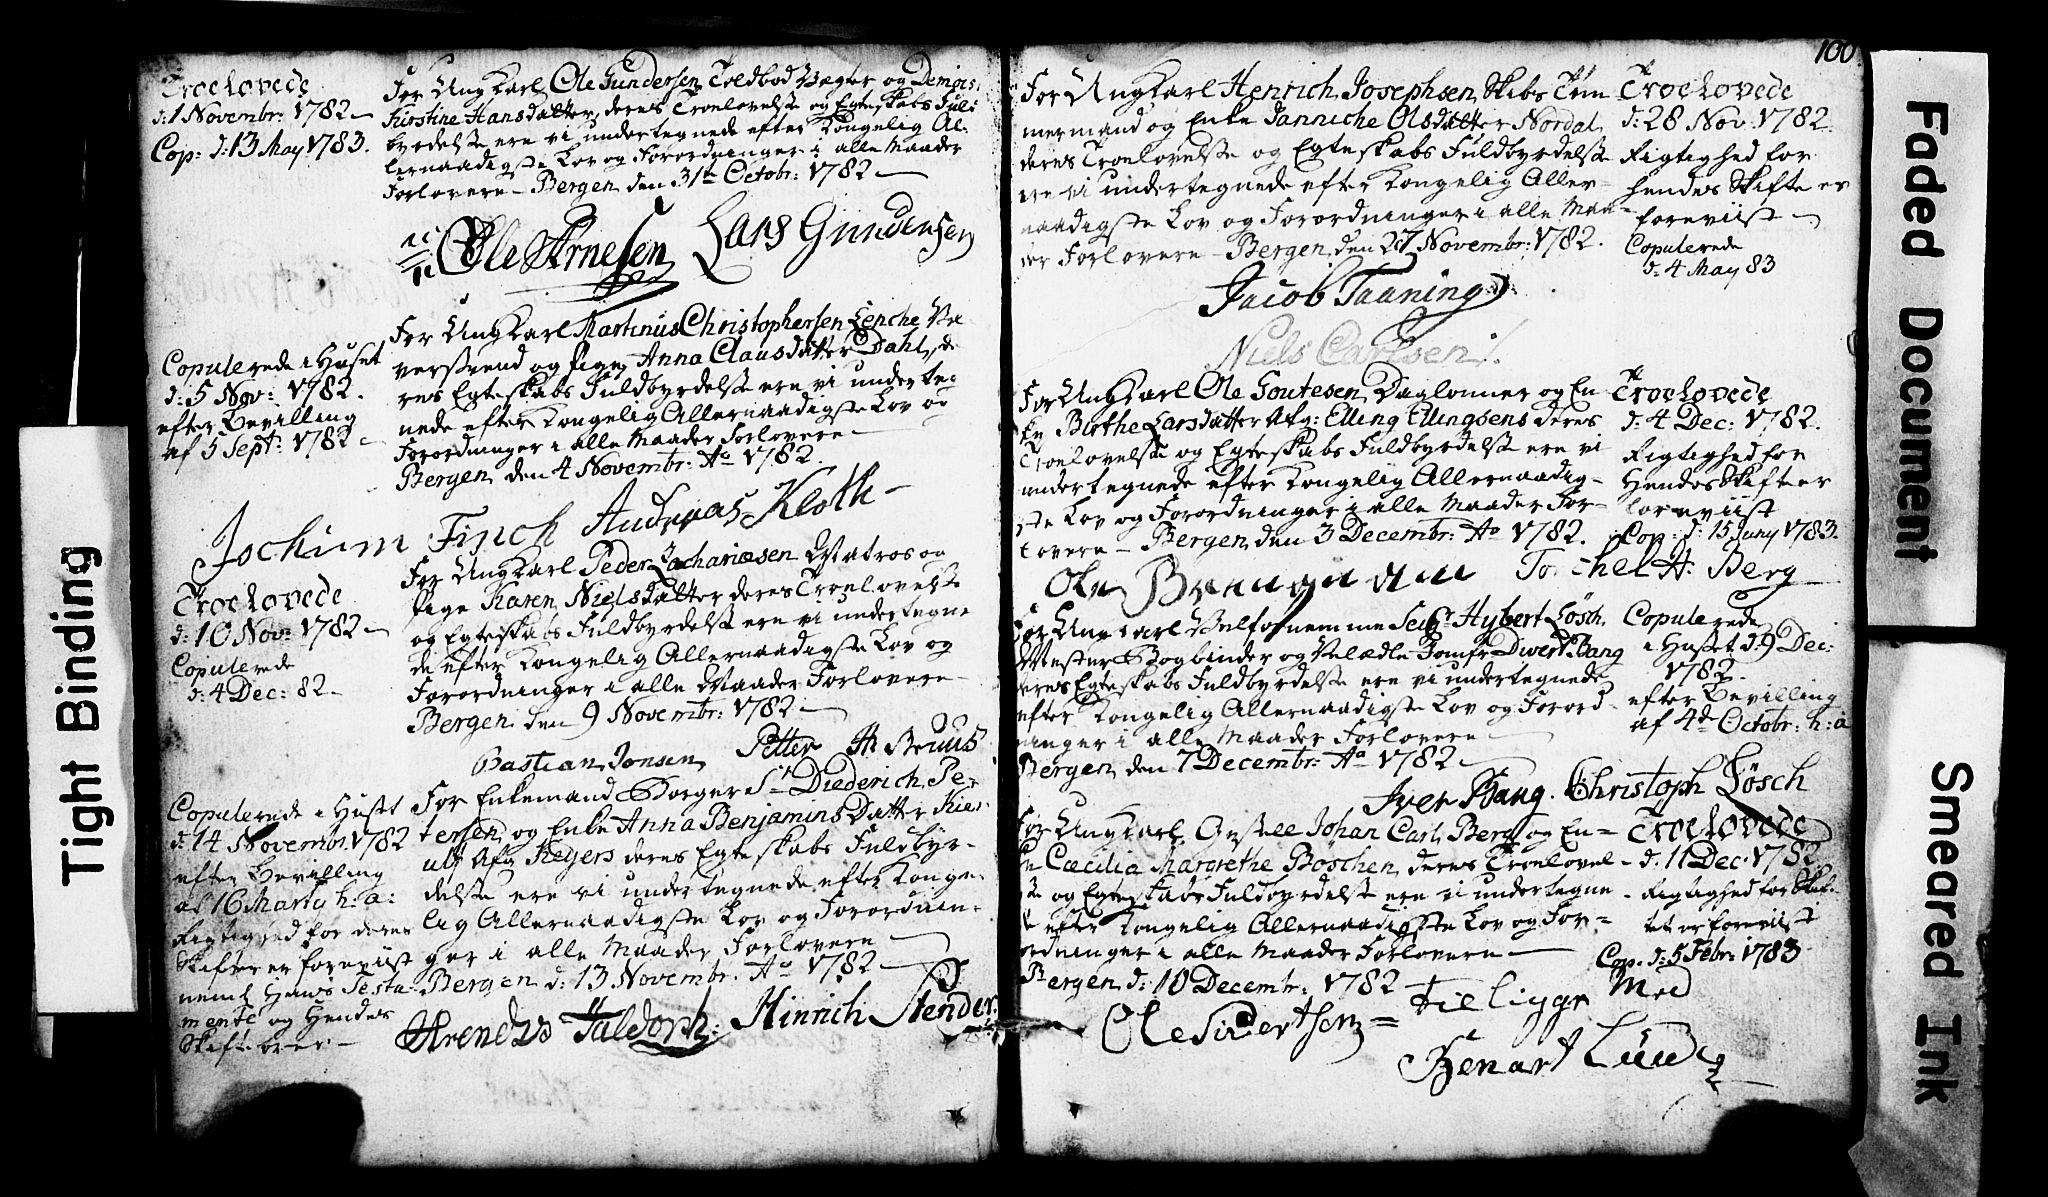 Troelovede
d: 1 Novembr: 1782 –
Cop: d: 13 May 1783.
For Ung Karl Ole Gundersen Toldbod Vægter og
Kirstine Hansdatter, deres Troelovelse og Egteskabs Fuld
byrdelse ere vi undertegnede efter Kongelig Al-
lernaadigste Lov og Forordninger i alle Maader
Forlovere – Bergen den 31te Octobr: 1782 –
Ole Arnesen Lars Gundersen
Copulerede i Huset
d: 5 Nov: 1782.
efter Bevilling
af 5 Sept: 1782 –
For Ung Karl Martinus Christophersen Lenche
og Pige Anna Claus datter Dahl, de
res Egteskabs Fuldbyrdelse ere vi underteg
nede efter Kongelig Allernaadigste Lov og
Forordninger i alle Maader Forlovere –
Bergen den 4 Novembr: Ao 1782.
Jochim Finch Andreas Kloth –
Troelovede
d: 10 Nov: 1782 –
Copulerede
d: 4 Dec: 82 –
For Ung Karl Peder Zachariasen Matros og
Pige Karen Nielsdatter deres Troelovelse
og Egteskabs Fuldbyrdelse ere vi undertegne
de efter Kongelig Allernaadigste Lov og
Forordninger i alle Maader Forlovere –
Bergen den 9 Novembr: 1782 –
Bastian Jonsen Petter Hr Bruus
Copulerede i Huset
d: 14 Novembr. 1782
efter Bevilling
af 16 Marty h: a:
Rigtighed for deres
Skifter er foreviist
neml: Hans Testa-
mente og Hendes
Skifte brev –
For Enkemand Borger Sr Diederich Pe-
tersen og Enke Anna Benjamins Datter
Afg Meyers deres Egteskabs Fuldbyr-
delse ere vi undertegnede efter Konge-
lig Allernaadigste Lov og Forordnin-
ger i alle Maader Forlovere –
Bergen d: 13 Novembr. Ao 1782 –
Arendt Taldorph: Hinrich Stender
100
For Ung Karl Henrich Josephsen Skibs Tim-
mermand og Enke Janniche Olsdatter Nordal
deres Troelovelse og Egteskabs Fuldbyrdelse
ere vi undertegnede efter Kongelig Aller-
naadigste Lov og Forordninger i alle Maa-
der Forlovere – Bergen den 27 Novembr: 1782.
Troelovede
d: 28 Nov: 1782
Rigtighed for
hendes Skifte er
foreviist –
Copulerede
d: 4 May 83
Jacob Taaning
Niels Carlsen
For Ung Karl Ole Goutesen Daglønner og En-
ke Birthe Larsdatter Afg: Elling Ellingsens deres
Troelovelse og Egteskabs Fuldbyrdelse ere vi
undertegnede efter Kongelig Allernaadig-
ste Lov og Forordninger i alle Maader For-
lovere – Bergen den 3 Decembr: Ao 1782.
Troelovede
d: 4 Dec: 1782.
Rigtighed for
Hendes Skifte er
foreviist
Cop: d: 15 Juny 1783.
Ole Torchel H. Berg
For Ung Karl Velfornemme Seigr Hybert Lösch.
Mester Bogbinder og Velædle Jomfr Divert Bang
deres Egteskabs Fuldbyrdelse ere vi undertegnede
efter Kongelig Allernaadigste Lov og Forord-
ninger i alle Maader Forlovere –
Bergen den 7 Decembr: Ao 1782 –
Copulerede
i Huset d: 9 Dec:
1782.
efter Bevilling
af 4de Octobr: h: a
Iver Bang. Christoph Lösch
For Ung Karl Johan Carl Berg og En=
ke Cæcilia Margrethe Böschen, deres Troelovel-
se og Egteskabs Fuldbyrdelse ere vi undertegne-
de efter Kongelig Allernaadigste Lov og For=
ordninger i alle Maader Forlovere –
Bergen d: 10 Decembr: 1782 –
Troelovede
d: 11 Dec: 1782
Rigtighed for Skif-
tet er foreviist
Cop. d: 5 Febr: 1783
Ole Sivertsen = Tieliger Mod
Benart Lund
Tight Binding
Faded Document
Smeared Ink